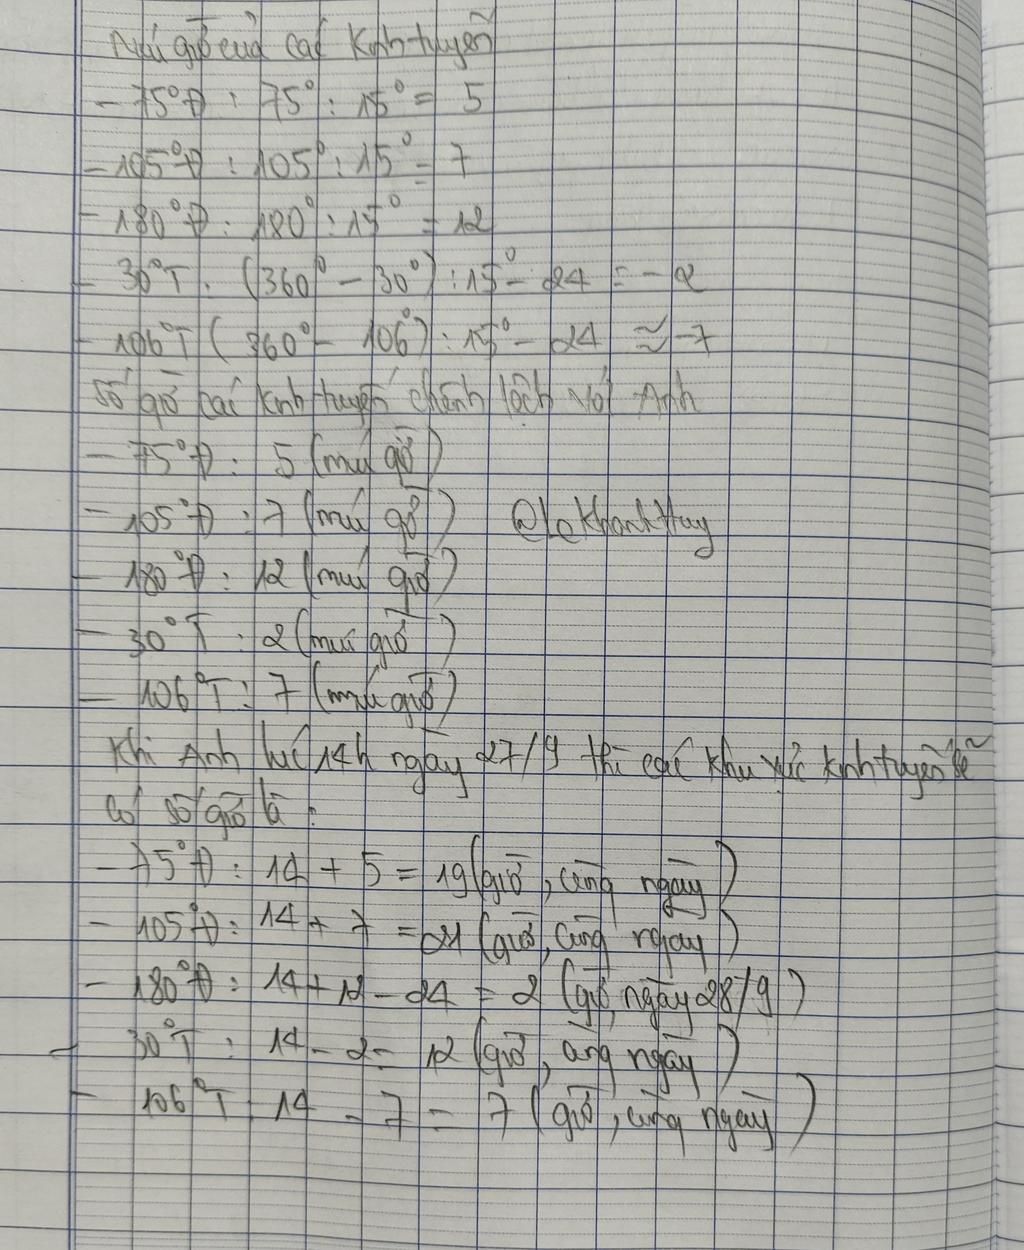 Múi giờ của các kinh tuyến
- 75°Đ : 75° : 15° = 5
- 105°Đ : 105° : 15° = 7
- 180°Đ : 180° : 15° = 12
- 30°T : (360° - 30°) : 15° - 24 = - 2
- 106°T (360° - 106°) : 15° - 24 ≈ -7
Số giờ các kinh tuyến chênh lệch với Anh
- 75°Đ : 5 (múi giờ)
- 105°Đ : 7 (múi giờ) @LeKhanhHuy
- 180°Đ : 12 (múi giờ)
- 30°T : 2 (múi giờ)
- 106°T : 7 (múi giờ)
Khi Anh lúc 14h ngày 27/9 thì các khu vực kinh tuyến sẽ
có số giờ là :
- 75°Đ : 14 + 5 = 19 (giờ, cùng ngày)
- 105°Đ : 14 + 7 = 21 (giờ, cùng ngày)
- 180°Đ : 14 + 12 - 24 = 2 (giờ, ngày 28/9)
- 30°T : 14 - 2 = 12 (giờ, cùng ngày)
- 106°T 14 - 7 = 7 (giờ, cùng ngày)